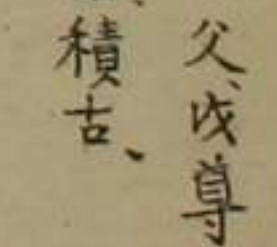 父、戊尊
積古、